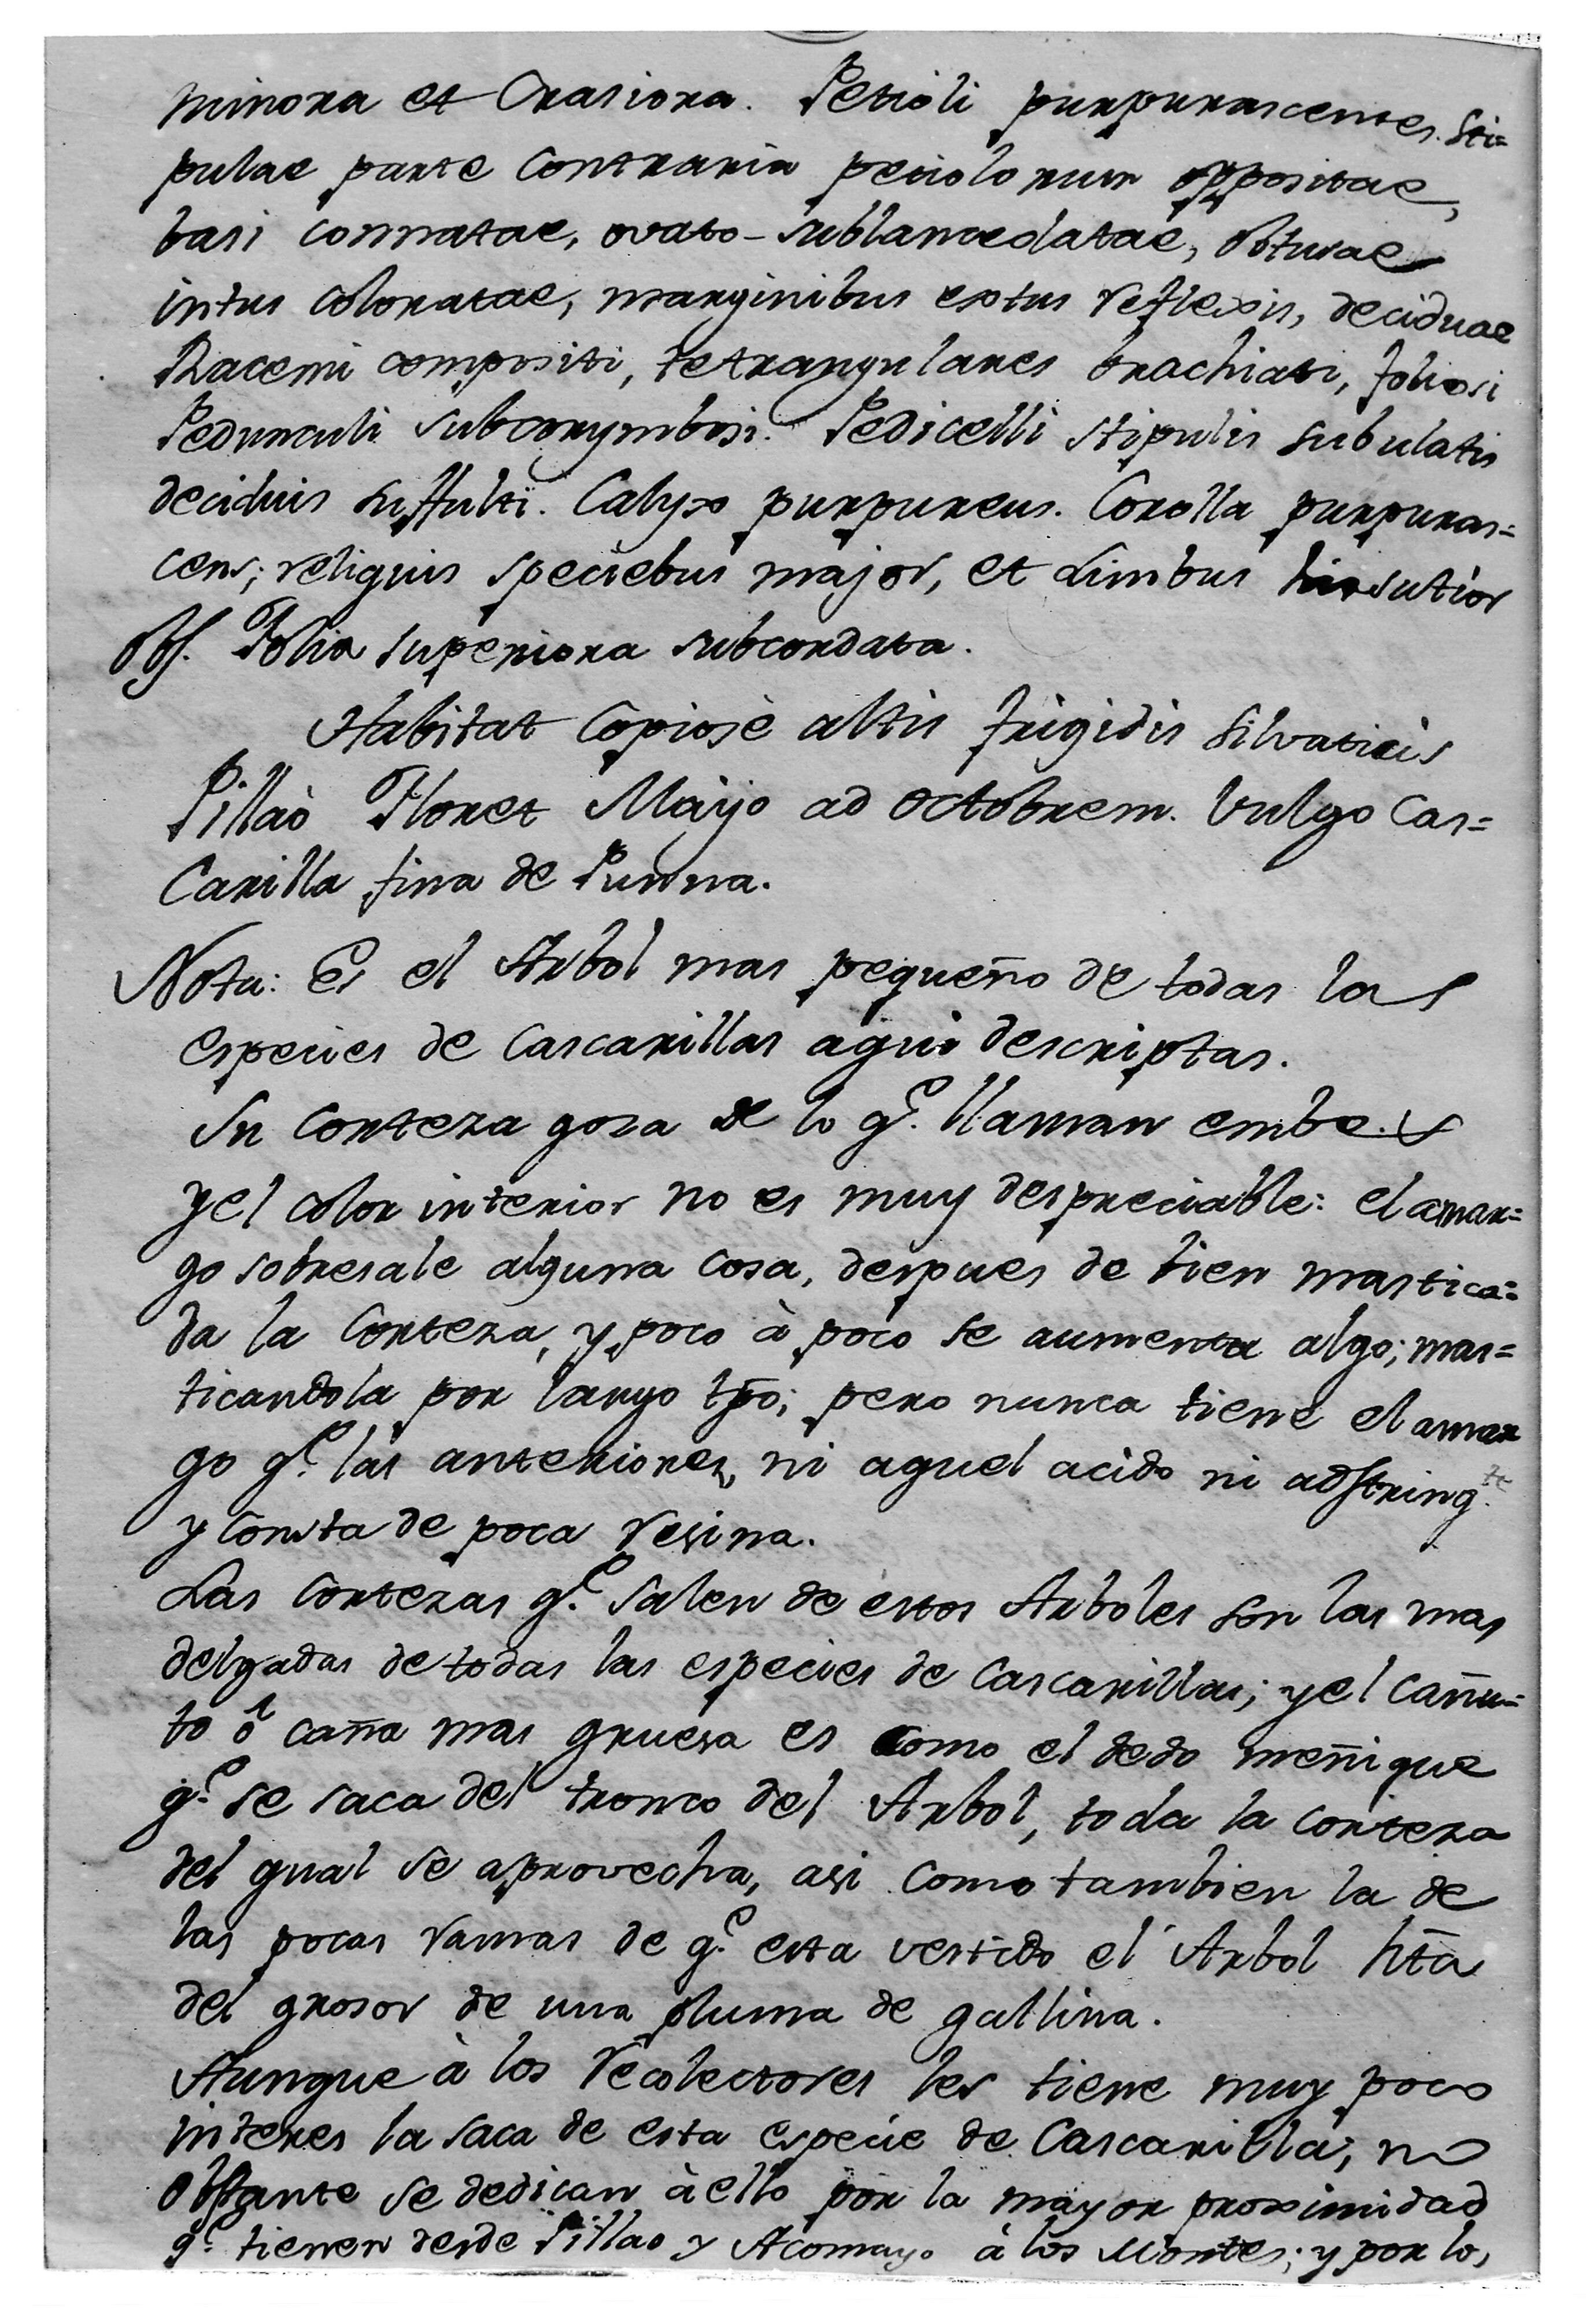 minora et Crasiora. Petioli purpurascentes. Sti=
pulae parte Contraria peciolorum oppositae,
basi connatae, ovato-sublanceolatae, obtusae
intus coloratae, marginibus extus reflexis, deciduae
Racemi compositi, tetrangulares brachiati, foliosi
Pedunculi subcorymbosi. Pedicelli stipulis subulatis
deciduis suffulti. Calyx purpureus. Corolla purpuras=
cens; religuis speciebus major, et Limbus hirsutior
Obs. Folia superiora subcordata.
Habitat Copiosè altis frigidis Silvaticis
Pillaò Floret Mayo ad Octobrem. Vulgo Cas=
Carilla fina de Punna.
Nota: Es el Arbol mas pequeño de todas las
especies de Cascarillas aqui descriptas.
Su Corteza goza de lo q.e llaman embe.s
y el color interior no es muy despreciable: el amar=
go sobresale alguna cosa, despues de bien mastica=
da la Corteza, y poco à poco se aumenta algo; mas=
ticandola por largo tpo; pero nunca tiene el amar
go q.e las anteriores, ni aquel acido ni adstring.te
y Consta de poca resina.
Las Cortezas q.e salen de estos Arboles son las mas
delgadas de todas las especies de Cascarillas; y el cañu=
to ô caña mas gruesa es como el dedo meñique
q.e se saca del tronco del Arbol, toda la corteza
del qual se aprovecha, asi como tambien la de
las pocas ramas de q.e esta vestido el Arbol hta
del grosor de una pluma de gallina.
Aunque à los recolectores les tiene muy poco
interes la saca de esta especie de Cascarilla; no
obstante se dedican à ello por la mayor proximidad
q.e tienen desde Pillao y Acomayo à los Montes; y por lo,